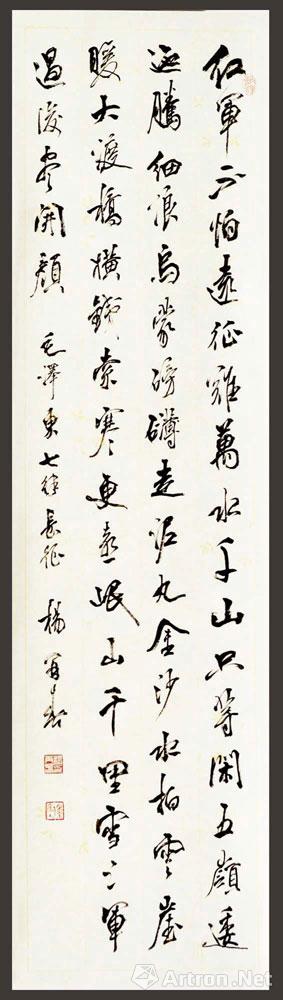 紅軍不怕遠征難萬水千山只等閑五嶺逶
迤騰細浪烏蒙磅礴走泥丸金沙水拍雲崖
暖大渡橋橫鐵索寒更喜岷山千里雪三軍
過後盡開顏 毛澤東七律長征 楊再春
Artron.Net